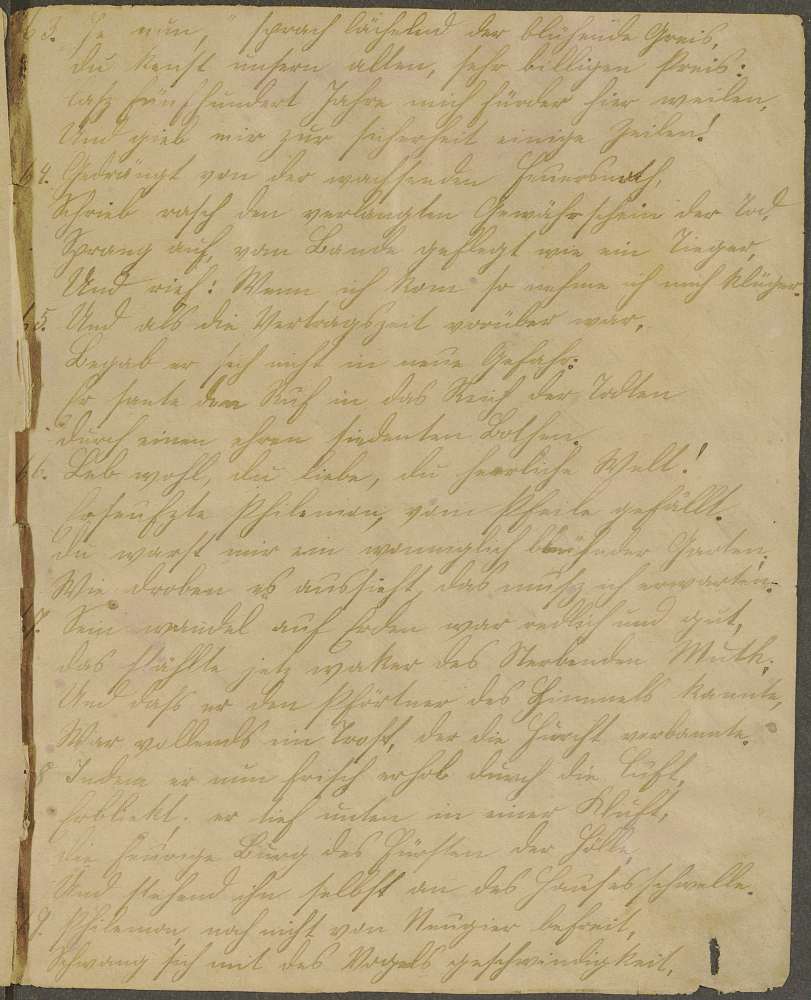 63. Je nun," sprach lächelnd der blühende Greis,
du kenst unsern alten, sehr billigen Preis:
lasz fünfhundert Jahre mich fürder hier weilen,
Und gieb mir zur sicherheit einige Zeilen!
64. Gedrängt von der wachsenden Feuersnoth,
Schrieb rasch den verlangten Gewährschein der Tod,
Sprang auf, vom Bande geflegt wie ein Tieger,
Und rief: Wenn ich kom so nehme ich mich klüger.
65. Und als die Vertragszeit vorüber war,
Begab er sich nicht in neue Gefahr:
Er sante den Ruf in das Reich der Todten
durch einen ehren siedenten Bothen.
66. Leb wohl, du liebe, du herrliche Welt!
so seufzte Philemon, vom Pfeile gefällt.
du warst mir ein wonniglich blühnder Garten,
Wie droben es aussieht, das musz ich erwarten.
67. Sein wandel auf Erden war redlich und gut,
das stählte jetz waker des Sterbenden Muth;
Und dasz er den Pförtner des Himmels kannte,
War vollends ein Trost, der die Furcht verbannte.
68 Indem er nun frisch erhob durch die Luft,
Erblickt, er tief unten in einer Kluft,
die feurige Burg des Fürsten der Hölle,
Und stehend ihn selbst an des Hauses schwelle.
69. Philemon, noch nicht von Neugier befreit,
Schwang sich mit des Vogels geschwindigkeit,